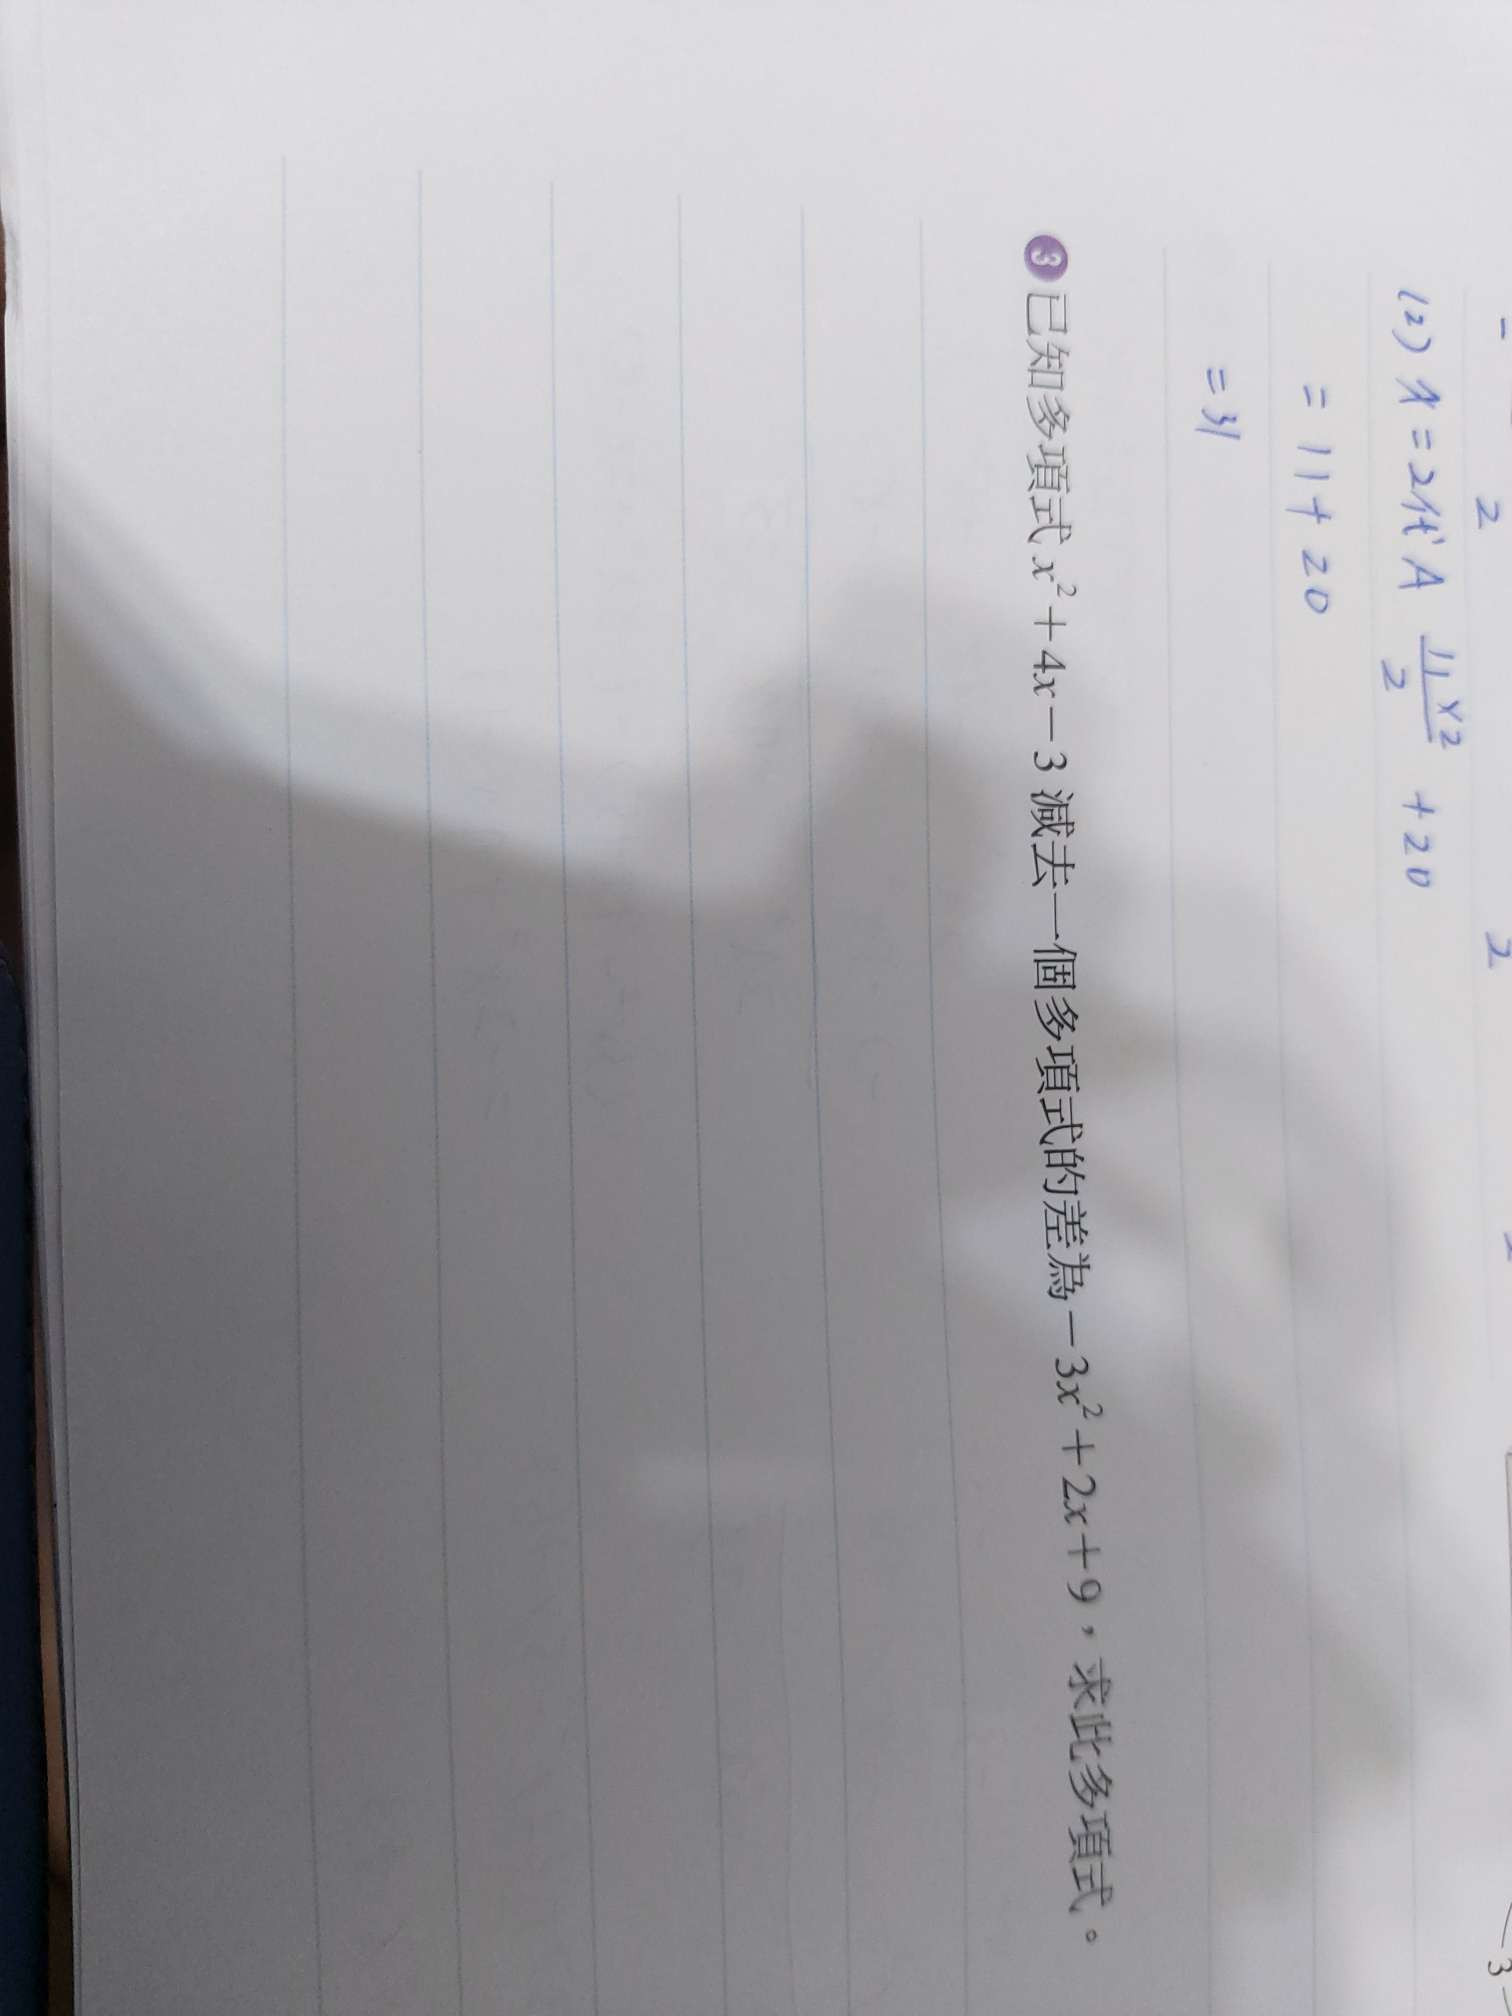 2 2
(2) x=2代A 11×2/2 +20
= 11+20
=31
3 已知多項式 x²+4x-3 減去一個多項式的差為-3x²+2x+9，求此多項式。